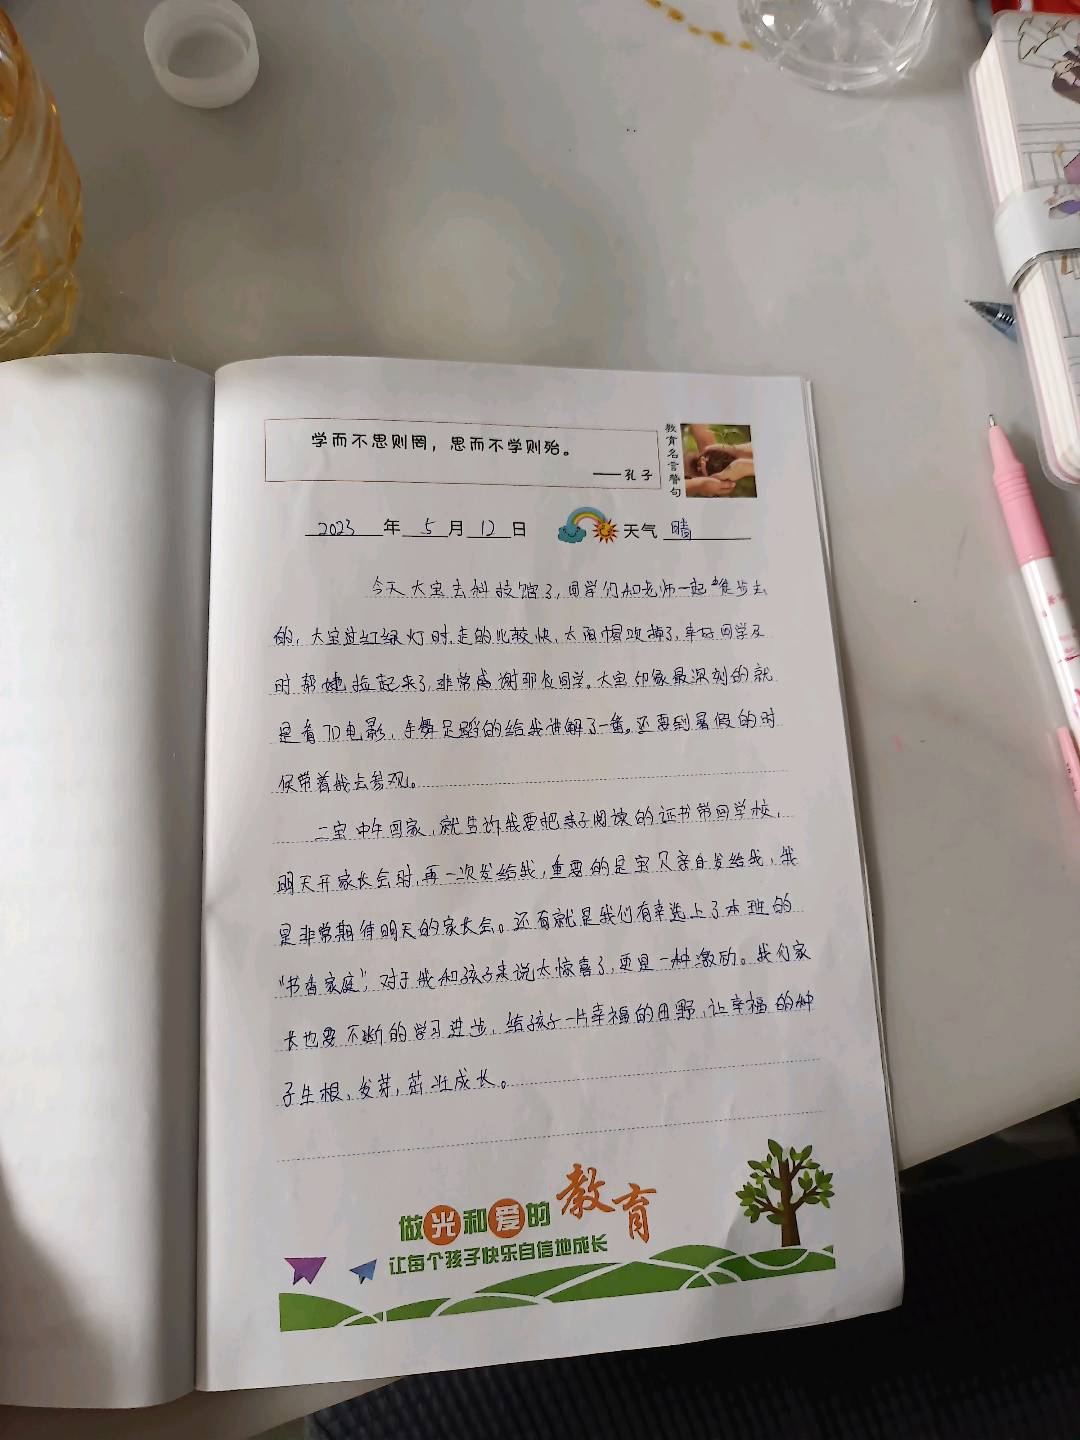 学而不思则罔，思而不学则殆。
——孔子
教育名言警句
2023年5月12日 天气 晴
今天大宝去科技馆了，同学们和老师一起徒步去
的，大宝过红绿灯时，走的比较快，太阳帽吹掉了，幸好同学及
时帮她捡起来了，非常感谢那位同学。大宝印象最深刻的就
是看7D电影，手舞足蹈的给我讲解了一番。还要到暑假的时
候带着我去参观。
二宝中午回家，就告诉我要把亲子阅读的证书带回学校，
明天开家长会时，再一次发给我，重要的是宝贝亲自发给我，我
是非常期待明天的家长会。还有就是我们有幸选上了本班的
“书香家庭”，对于我和孩子来说太惊喜了，更是一种激励。我们家
长也要不断的学习进步，给孩子一片幸福的田野，让幸福的种
子生根，发芽，茁壮成长。
做光和爱的教育
让每个孩子快乐自信地成长